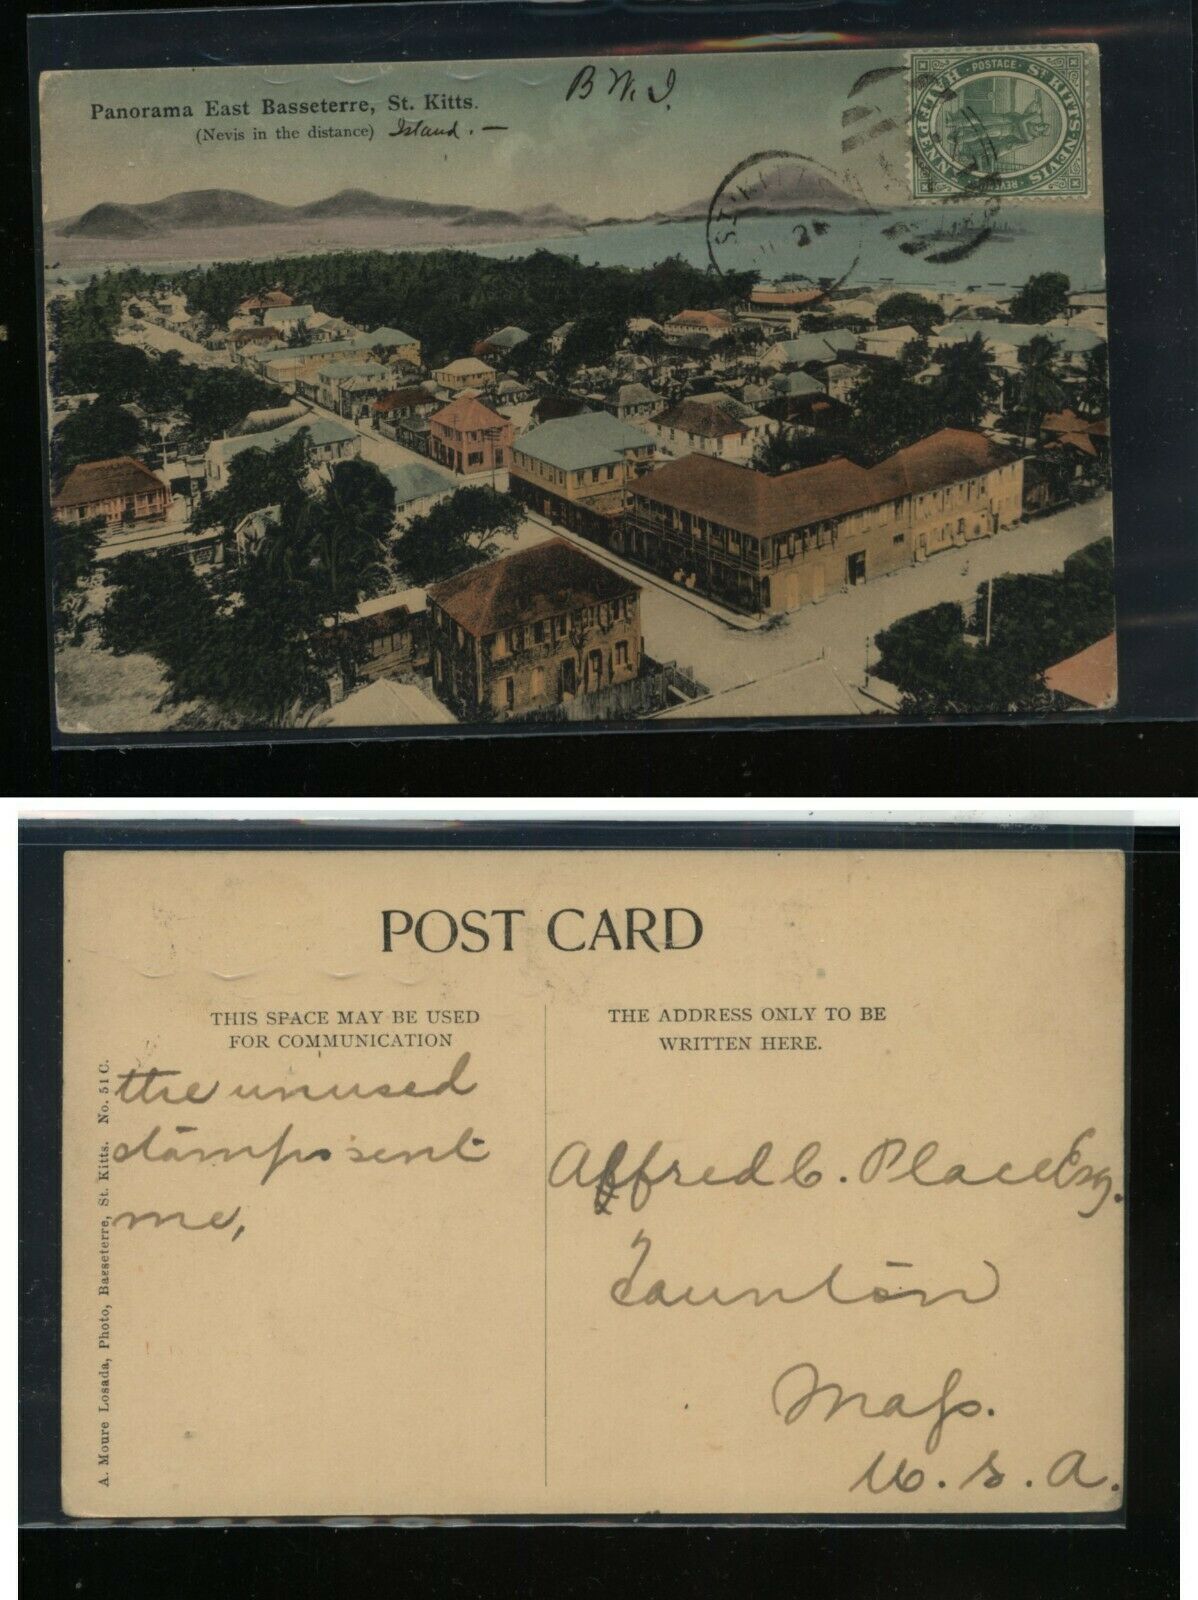 Panorama East Basseterre, St. Kitts.
(Nevis in the distance) Island. —
B W. I.
ST. KITTS-NEVIS
POSTAGE
HALFPENNY
REVENUE
ST. KITTS
POST CARD
THIS SPACE MAY BE USED
FOR COMMUNICATION
the unused
stamps sent
me,
THE ADDRESS ONLY TO BE
WRITTEN HERE.
Alfred C. Place Esq.
Taunton
Mass.
U. S. A.
A. Moure Losada, Photo, Basseterre, St. Kitts. No. 51 C.